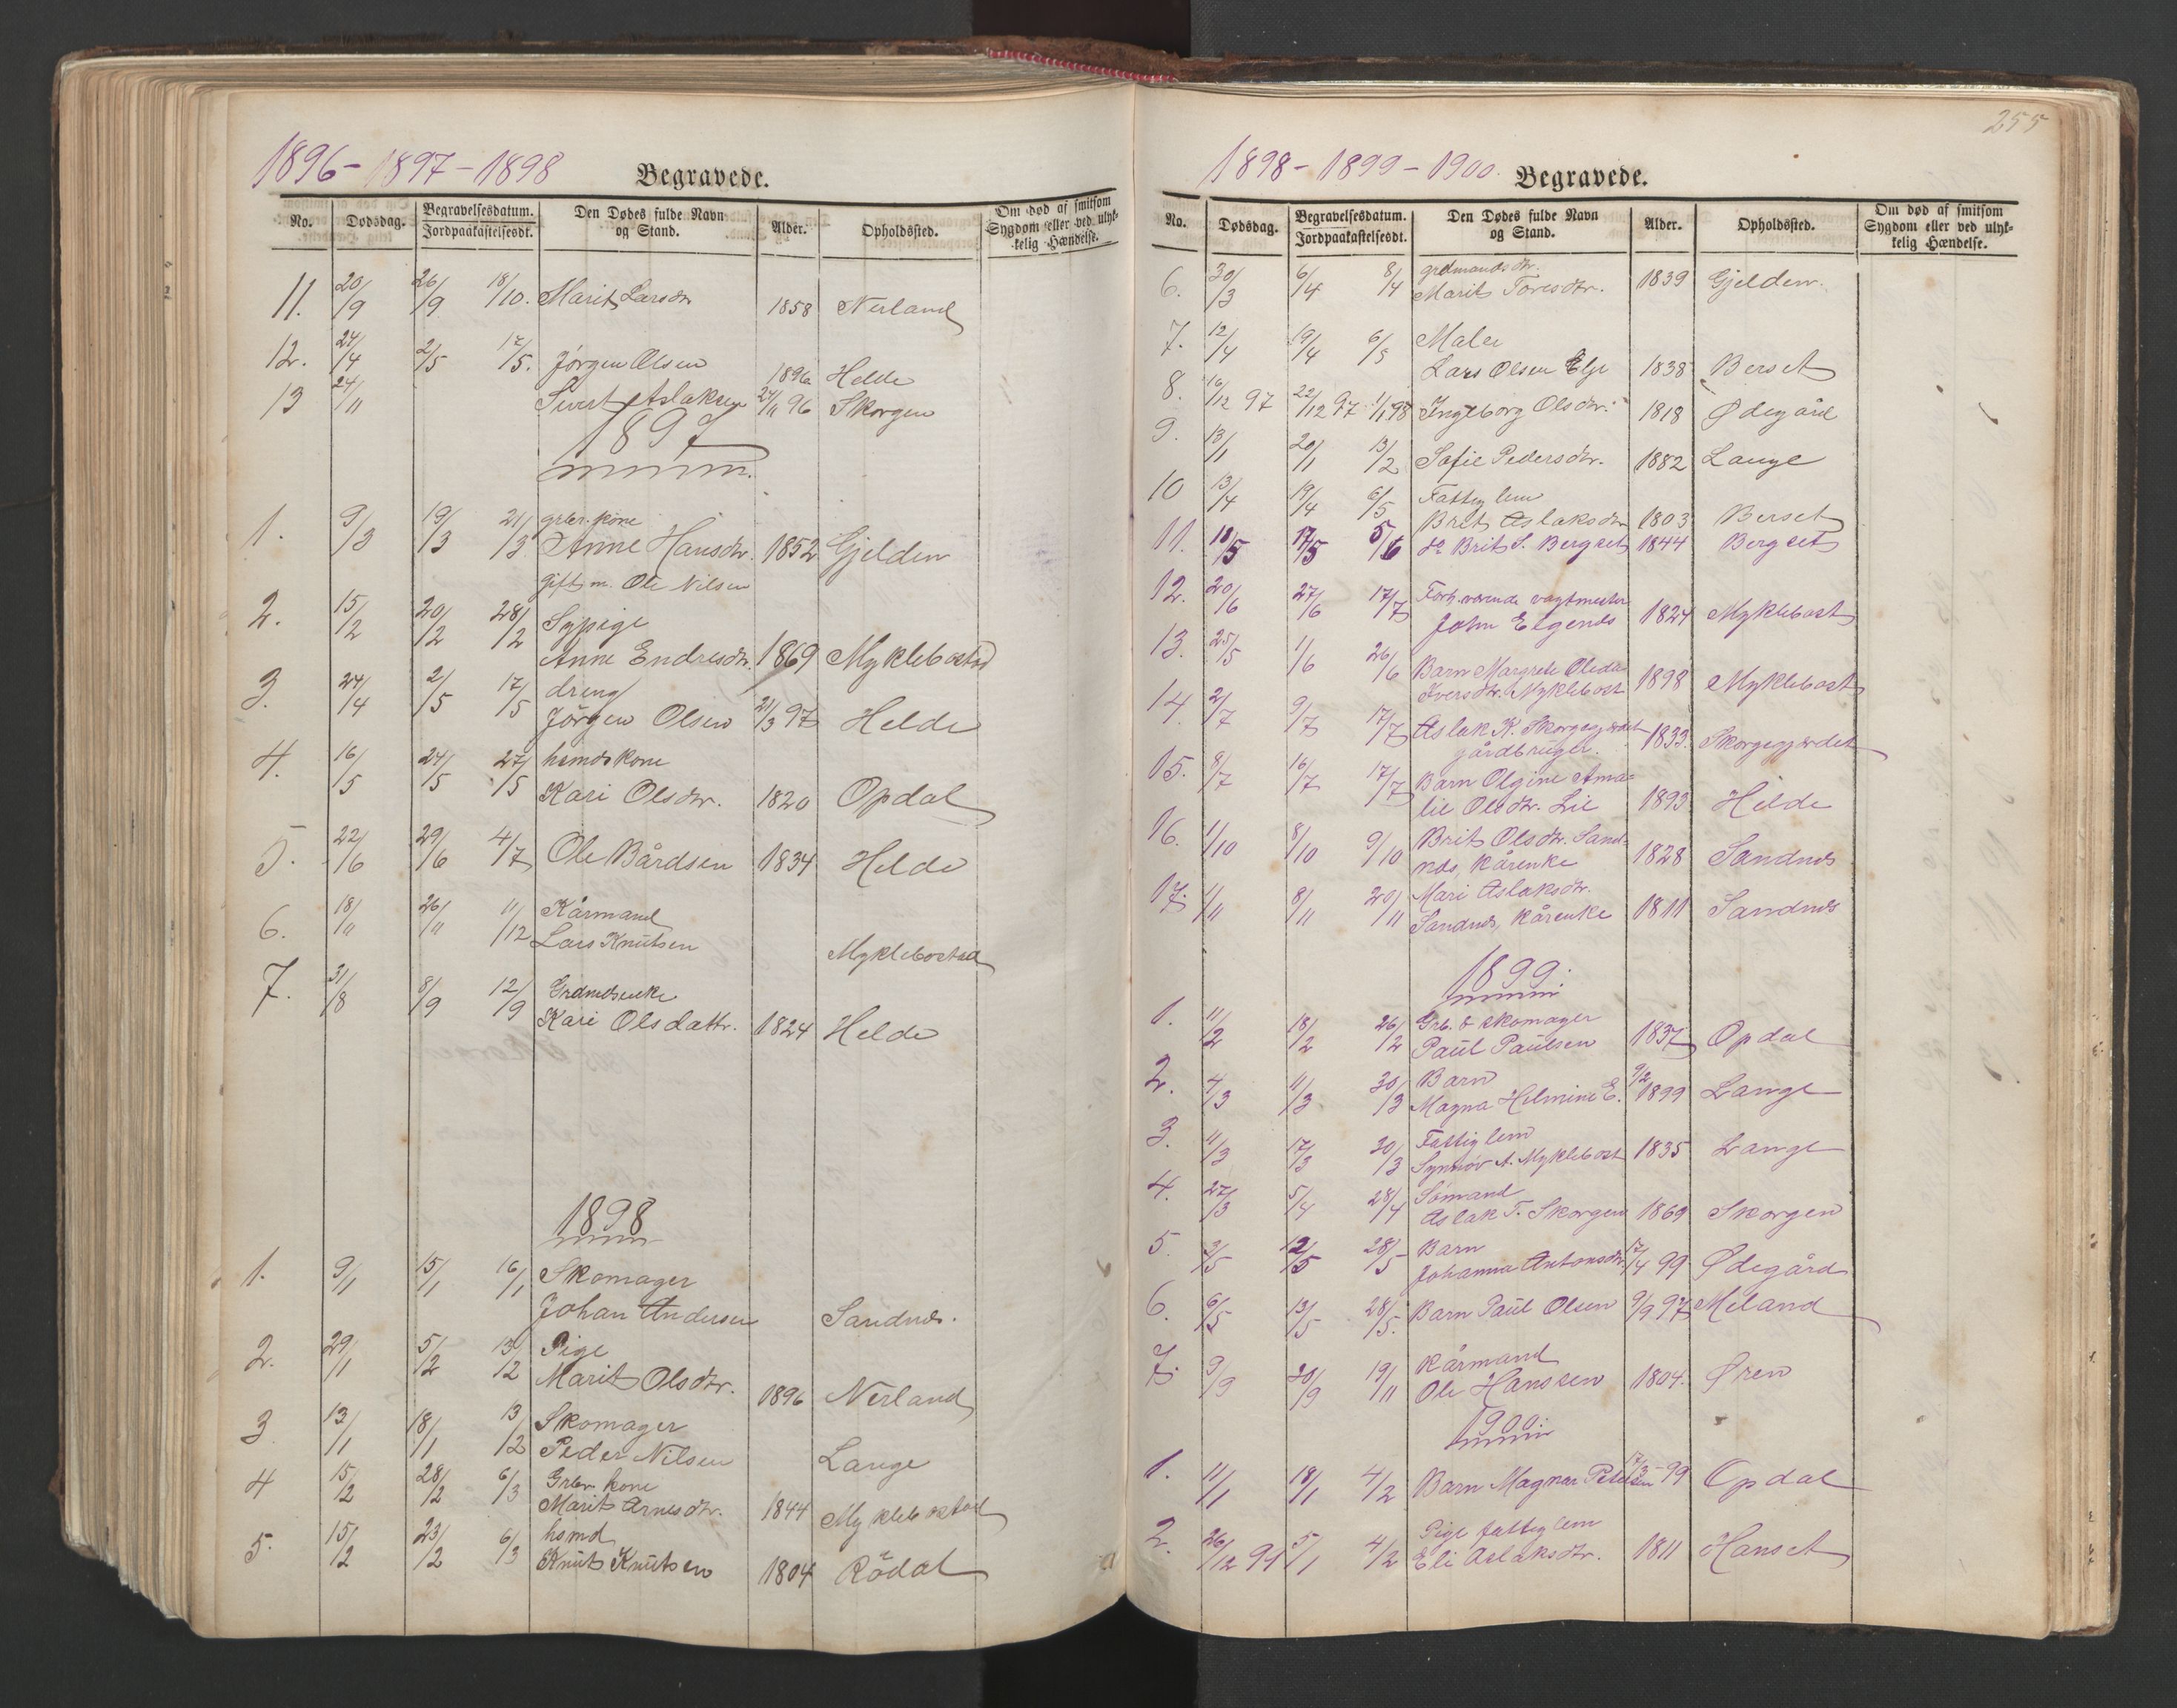 1896-1897-1898
Begravede.
No. Dødsdag. Begravelsesdatum. Jordpaakastelsesdt. Den Dødes fulde Navn og Stand. Alder. Opholdssted. Om død af smitsom Sygdom eller ved ulykkelig Hændelse.
11. 20/9 26/9 18/10. Marit Larsdtr 1858 Nerland
12. 24/4 2/5 17/5. Jørgen Olsen 1896 Helde
13 24/11 Sivert Aslaksen 24/11 96 Skorgen
1897
1. 9/3 19/3 21/3 grbr. kone
Anne Hansdtr. 1852 Gjelden
gift m. Ole Nilsen
2. 15/2 20/2 28/2 Sypige
Anne Endresdtr. 1869 Myklebostad
3. 24/4 2/5 17/5 dreng
Jörgen Olsen 21/3 97 Helde
4. 16/5 24/5 27/5 hsmdskone
Kari Olsdtr. 1820 Opdal
5. 22/6 29/6 4/7 Ole Bårdsen 1834 Helde
6. 18/11 26/11 11/12 Kårmand
Lars Knutsen Myklebostad
7. 31/8 8/9 12/9 Grdmdsenke
Kari Olsdattr. 1824 Helde
1898
1. 9/1 15/1 16/1 Skomager
Johan Andersen Sandnes.
2. 29/1 5/2 13/2 Pige
Marit Olsdtr. 1896 Nerland
3 13/1 18/1 13/2 Skomager
Peder Nilsen Lange
4 15/2 28/2 6/3 Grbr kone
Marit Arnesdtr. 1844 Myklebostad
5. 15/2 23/2 6/3 hsmd
Knut Knutsen 1804 Rödal
255
1898-1899-1900.
Begravede.
No. Dødsdag. Begravelsesdatum. Jordpaakastelsesdt. Den Dødes fulde Navn og Stand. Alder. Opholdssted. Om død af smitsom Sygdom eller ved ulykkelig Hændelse.
6. 30/3 6/4 8/4 grdmandsdtr.
Marit Toresdtr. 1839 Gjelden.
7. 12/4 19/4 6/5 Maler
Lars Olsen Elje 1838 Berset
8. 16/12 97 22/12 97 1/1 98 Ingeborg Olsdtr. 1818 Ødegård
9. 13/1 20/1 13/2 Sofie Pedersdtr. 1882 Lange
10 13/4 19/4 6/5 Fattiglem
Brit Aslaksdtr 1803 Berset
11. 10/5 17/5 5/6 do Brit S. Bergset 1844 Bergset
12. 20/6 27/6 17/7 Forh.værende vagtmester
John Elgends 1824 Myklebost
13. 25/5 1/6 26/6 Barn Margrete Oleda
Iversdtr. Myklebost 1898 Myklebost
14. 2/7 9/7 17/7 Aslak K. Skorgegjærdet
gårdbruger. 1833. Skorgegjærdet
15. 8/7 16/7 17/7 Barn Olgine Ama=
lie Olsdtr. Lie 1893 Helde
16. 1/10 8/10 9/10 Brit Olsdtr. Sand=
nes, kårenke 1828 Sandnes
17. 1/11 8/11 20/11 Mari Aslaksdtr.
Sandnes, kårenke 1811 Sandnes
1899.
1. 11/2 18/2 26/2 Grb. & skomager
Paul Paulsen 1837 Opdal
2. 4/3 11/3 30/3 Barn 9/2
Magna Helmine E. 1899 Lange
3. 11/3 17/3 30/3 Fattiglem
Synnöv A. Myklebost 1835 Lange
4. 27/3 5/4 28/4 Sömand
Aslak T. Skorgen 1869 Skorgen
5. 3/5 12/5 28/5 Barn
Johanna Antonsdtr. 17/4 99 Ødegård
6. 6/5 13/5 28/5. Barn Paul Olsen 9/9 97 Meland
7. 9/9 20/9 19/11 kårmand
Ole Hanssen 1804. Øren
1900.
1. 11/1 18/1 4/2 Barn Magnar Petersen 17/3-99 Opdal
2. 26/12 99 5/1 4/2 Pige fattiglem
Eli Aslaksdtr. 1811 Hanset